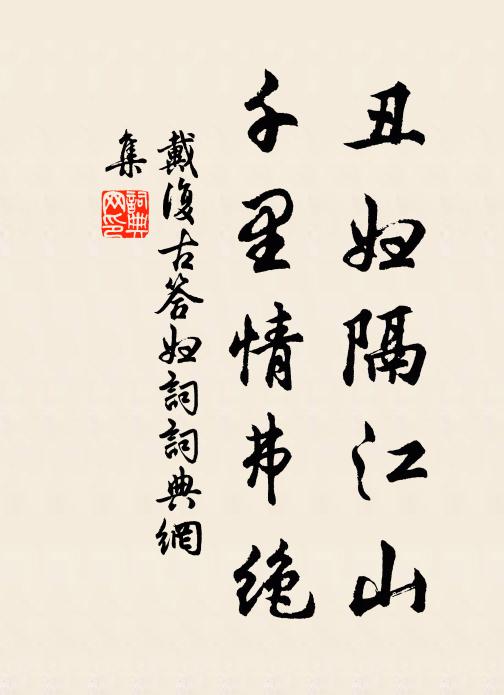 丑妇隔江山
千里情弗绝
戴復古答妇詞詞典網
集
詞典网印